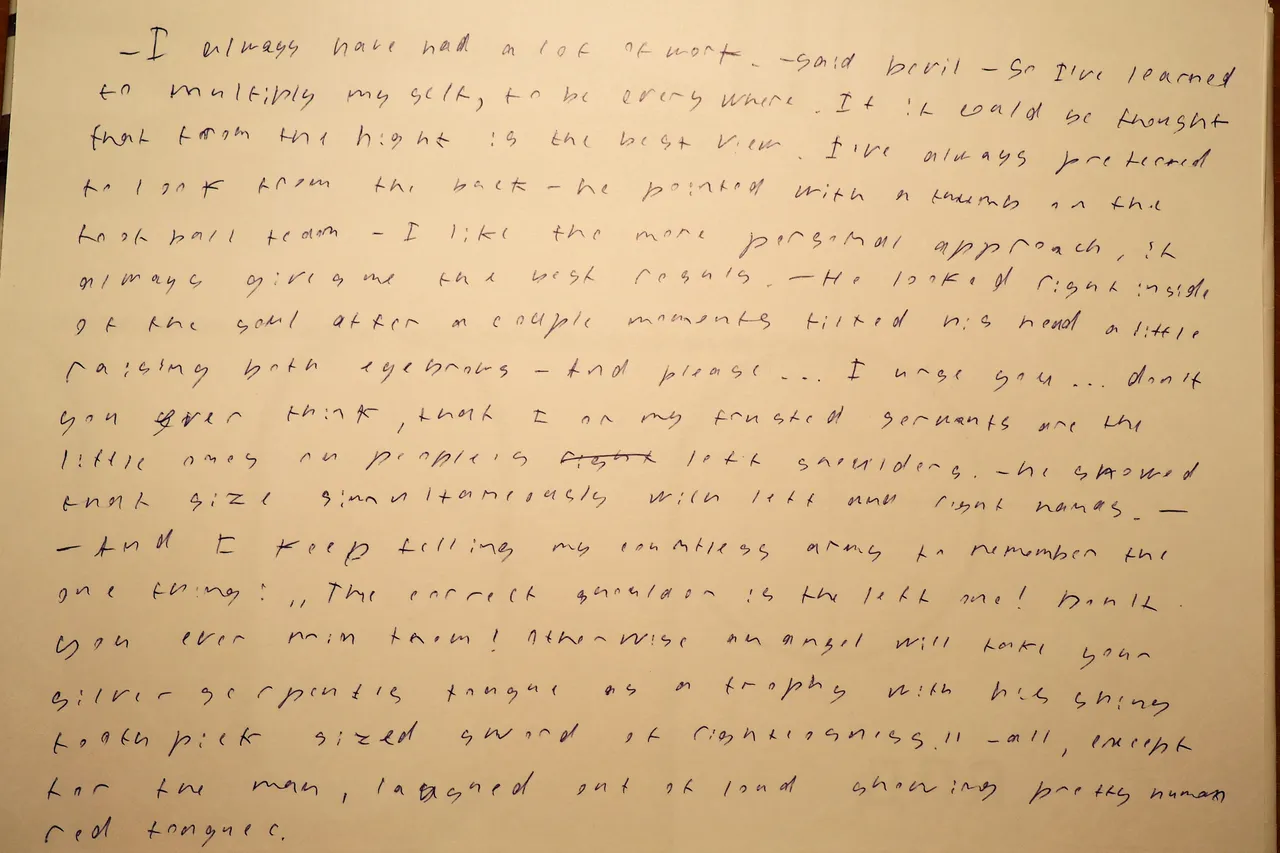 –I always have had a lot of work. –said Devil – So I've learned
to multiply my self, to be every where. If it could be thought
that from the hight is the best view. I've always preferred
to look from the back – he pointed with a thumb on the
foot ball team – I like the more personal approach, it
always gives me the best resuls. – He looked right inside
of the soul after a couple moments tilted his head a little
raising both eyebrows – And please... I urge you... don't
you ever think, that I or my trusted servants are the
little ones on people's right left shoulders. – he showed
that size simultaneously with left and right hands. –
– And I keep telling my countless army to remember the
one thing: „The correct shoulder is the left one! Don't
you ever them! Otherwise an angel will take your
silver serpentis tongue as a trophy with his shiny
tooth pick sized sword of righteosness." –all, except
for the man, laughed out of loud showing pretty human
red tongues.